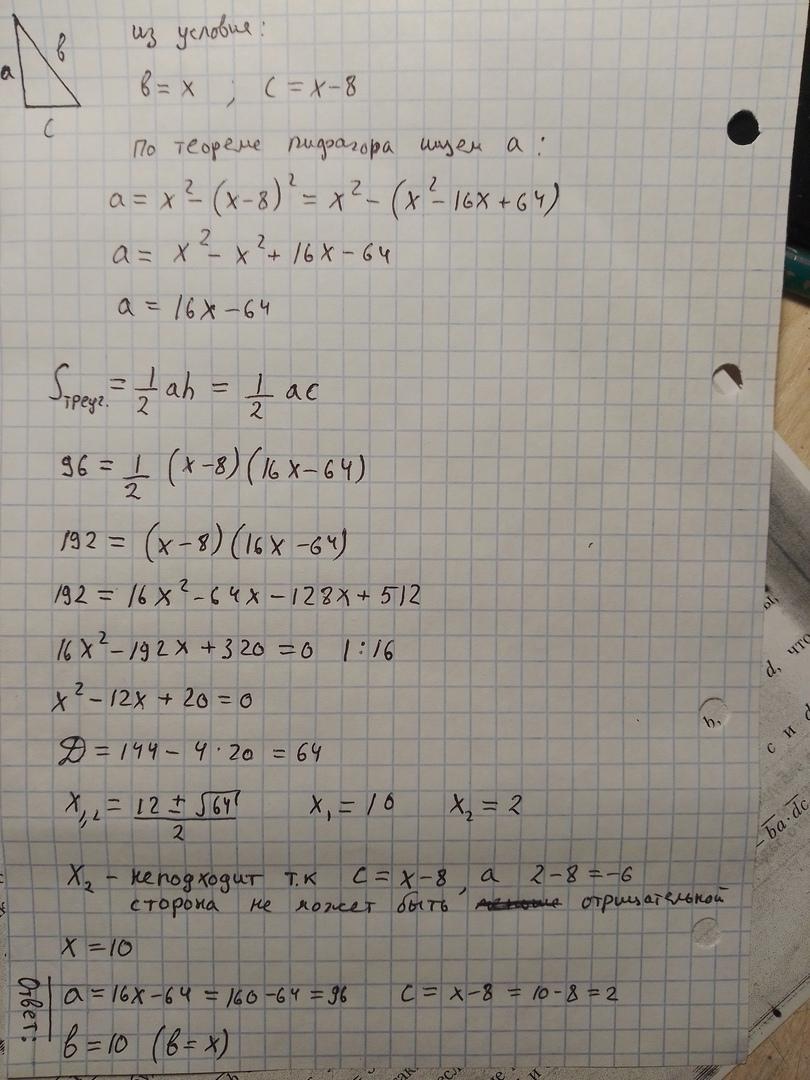 из условия:
a
в
c
в = x ; c = x-8
По теореме пифагора ищем a:
a = x² - (x-8)² = x² - (x² - 16x + 64)
a = x² - x² + 16x - 64
a = 16x - 64
Sтреуг. = 1/2 ah = 1/2 ac
96 = 1/2 (x-8)(16x-64)
192 = (x-8)(16x-64)
192 = 16x² - 64x - 128x + 512
16x² - 192x + 320 = 0 |:16
x² - 12x + 20 = 0
D = 144 - 4·20 = 64
x₁,₂ = (12 ± √64)/2 x₁ = 10 x₂ = 2
x₂ - неподходит т.к c = x-8, а 2-8 = -6
сторона не может быть отрицательной
x = 10
Ответ:
a = 16x - 64 = 160 - 64 = 96 c = x-8 = 10-8 = 2
в = 10 (в = x)
d, что
с и d
h,
ba·dc